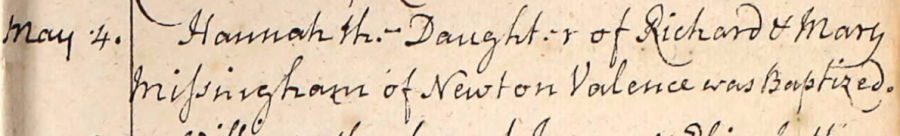 May .4. Hannah the Daughter of Richard & Mary
Missingham of Newton Valence was Baptized.